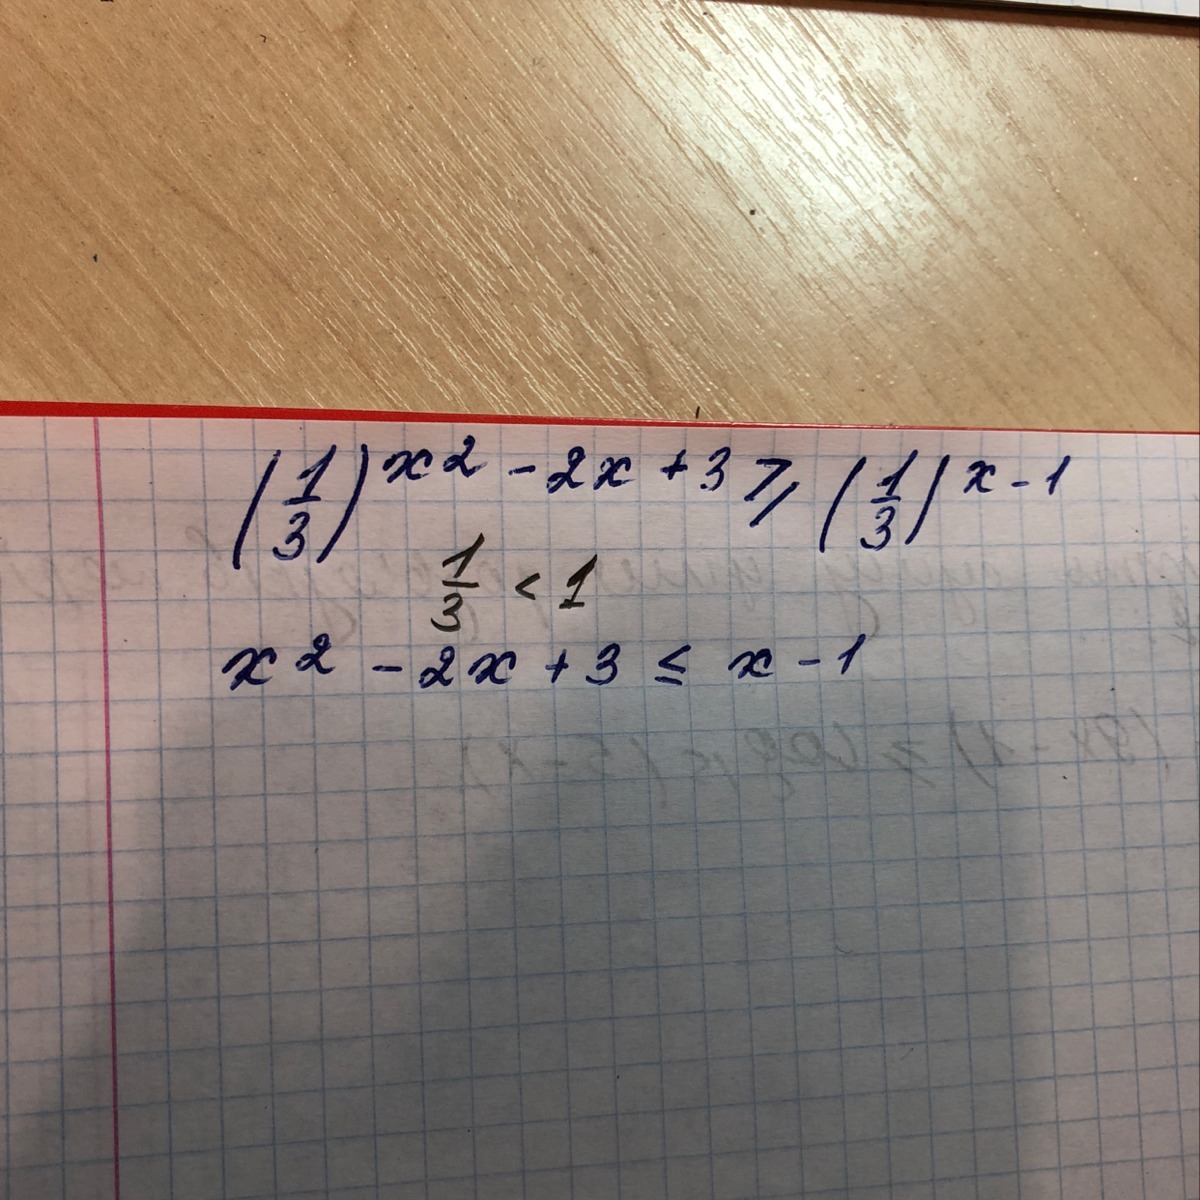 (1/3)^x2 - 2x + 3 ⩾ (1/3)^x - 1
1/3 < 1
x2 - 2x + 3 ≤ x - 1